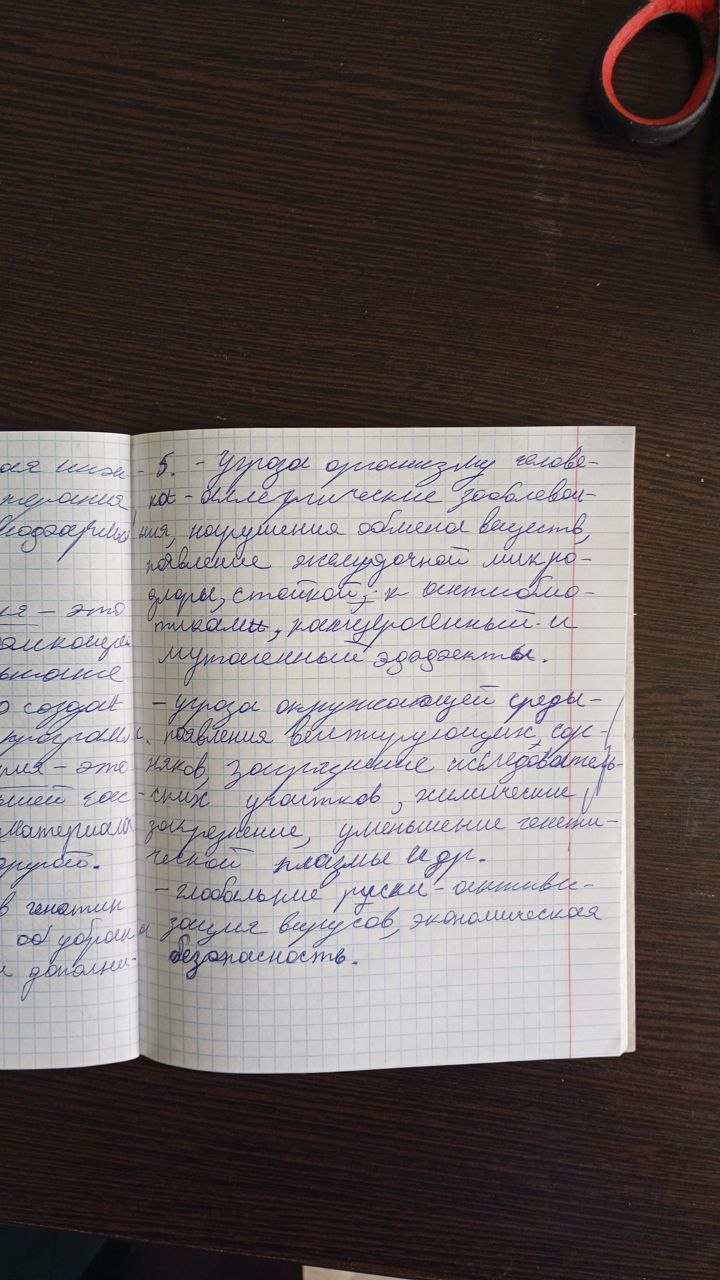 ая инже-
терапия
ия - это
о создат
програмы
рия - это
материала
другой.
в генотип
об убран
и дополни-
5. - Угроза организму челове-
ка - аллергические заоблеван-
ния, нарушения обмена веществ,
появление желудочной микро-
флоры, стойкой, к антибио-
тикам, концерогенный и
мутогенный эффекты.
- угроза окружающей среды-
появления вегтирующих сор-
няков, загрязнение исследователь-
ских участков, химические
загрезнение, уменьшение генети-
ческой плазмы и др.
- глобальные риски - активи-
зация вирусов, экономическая
безопасность.